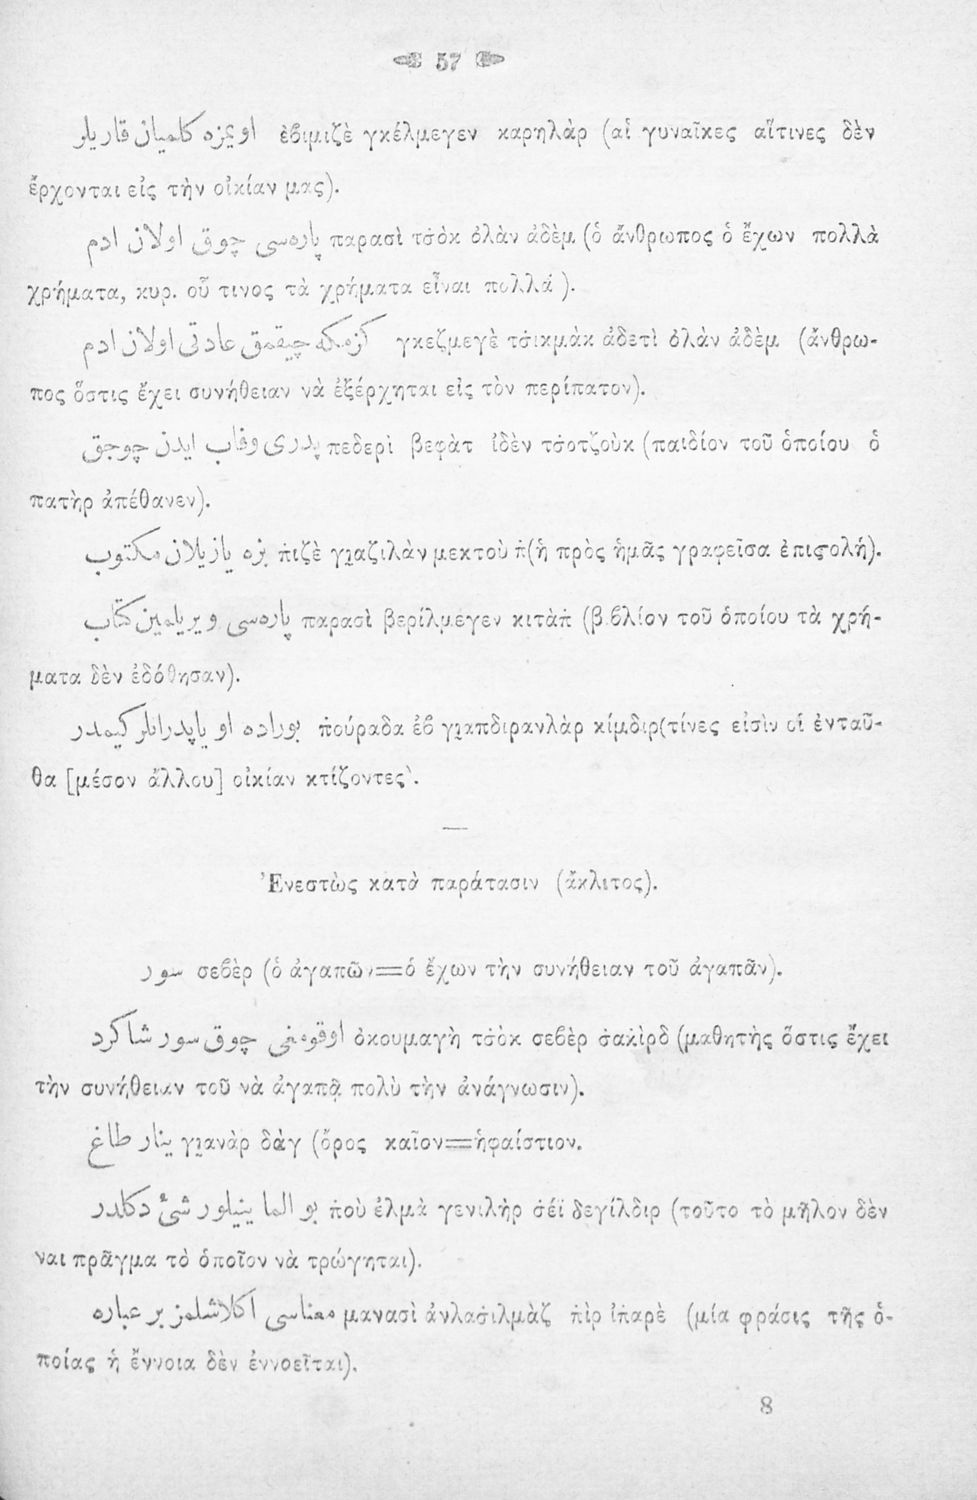 57
اویمزه كلمیان قاریلر ἐϐιμιζὲ γκέλμεγεν καρηλὰρ (αἱ γυναῖκες αἵτινες δὲν
ἔρχονται εἰς τὴν οἰκίαν μας).
پاره‌سی چوق اولان ادم παρασὶ τσ̇ὸκ ὀλὰν ἀδὲμ (ὁ ἄνθρωπος ὁ ἔχων πολλὰ
χρήματα, κυρ. οὗ τινος τὰ χρήματα εἶναι πολλά).
كزمكه چیقمق عادتی اولان ادم γκεζμεγὲ τσ̇ικμὰκ ἀδετὶ ὀλὰν ἀδὲμ (ἄνθρω-
πος ὅστις ἔχει συνήθειαν νὰ ἐξέρχηται εἰς τὸν περίπατον).
پدری وفات ایدن چوجق πεδερὶ βεφὰτ ἰδὲν τσ̇οτζοὺκ (παιδίον τοῦ ὁποίου ὁ
πατὴρ ἀπέθανεν).
بزه یازیلان مكتوب π̇ιζὲ γι̯αζιλὰν μεκτοὺπ̇ (ἡ πρὸς ἡμᾶς γραφεῖσα ἐπιϛολή).
پاره‌سی ویریلمین كتاب παρασὶ βερίλμεγεν κιτὰπ̇ (βιϐλίον τοῦ ὁποίου τὰ χρή-
ματα δὲν ἐδόθησαν).
بوراده او یاپدرانلر كیمدر π̇ούραδα ἐϐ γι̯απδιρανλὰρ κίμδιρ (τίνες εἰσὶν οἱ ἐνταῦ-
θα [μέσον ἄλλου] οἰκίαν κτίζοντες).
Ἐνεστὼς κατὰ παράτασιν (ἄκλιτος).
سور σεϐὲρ (ὁ ἀγαπῶν=ὁ ἔχων τὴν συνήθειαν τοῦ ἀγαπᾶν).
اوقومغی چوق سور شاكرد ὀκουμαγὴ τσ̇ὸκ σεϐὲρ σ̇ακὶρδ (μαθητὴς ὅστις ἔχει
τὴν συνήθειαν τοῦ νὰ ἀγαπᾷ πολὺ τὴν ἀνάγνωσιν).
ینار طاغ γι̯ανὰρ δὰγ (ὄρος καῖον=ἡφαίστιον.
بو الما ینیلور شئ دكلدر π̇οὺ ἐλμὰ γενιλὴρ σ̇έϊ δεγίλδιρ (τοῦτο τὸ μῆλον δὲν
ναι πρᾶγμα τὸ ὁποῖον νὰ τρώγηται).
معناسی اكلاشلمز بر عباره μανασὶ ἀνλασ̇ιλμὰζ π̇ὶρ ἰπ̇αρὲ (μία φράσις τῆς ὁ-
ποίας ἡ ἔννοια δὲν ἐννοεῖται).
8